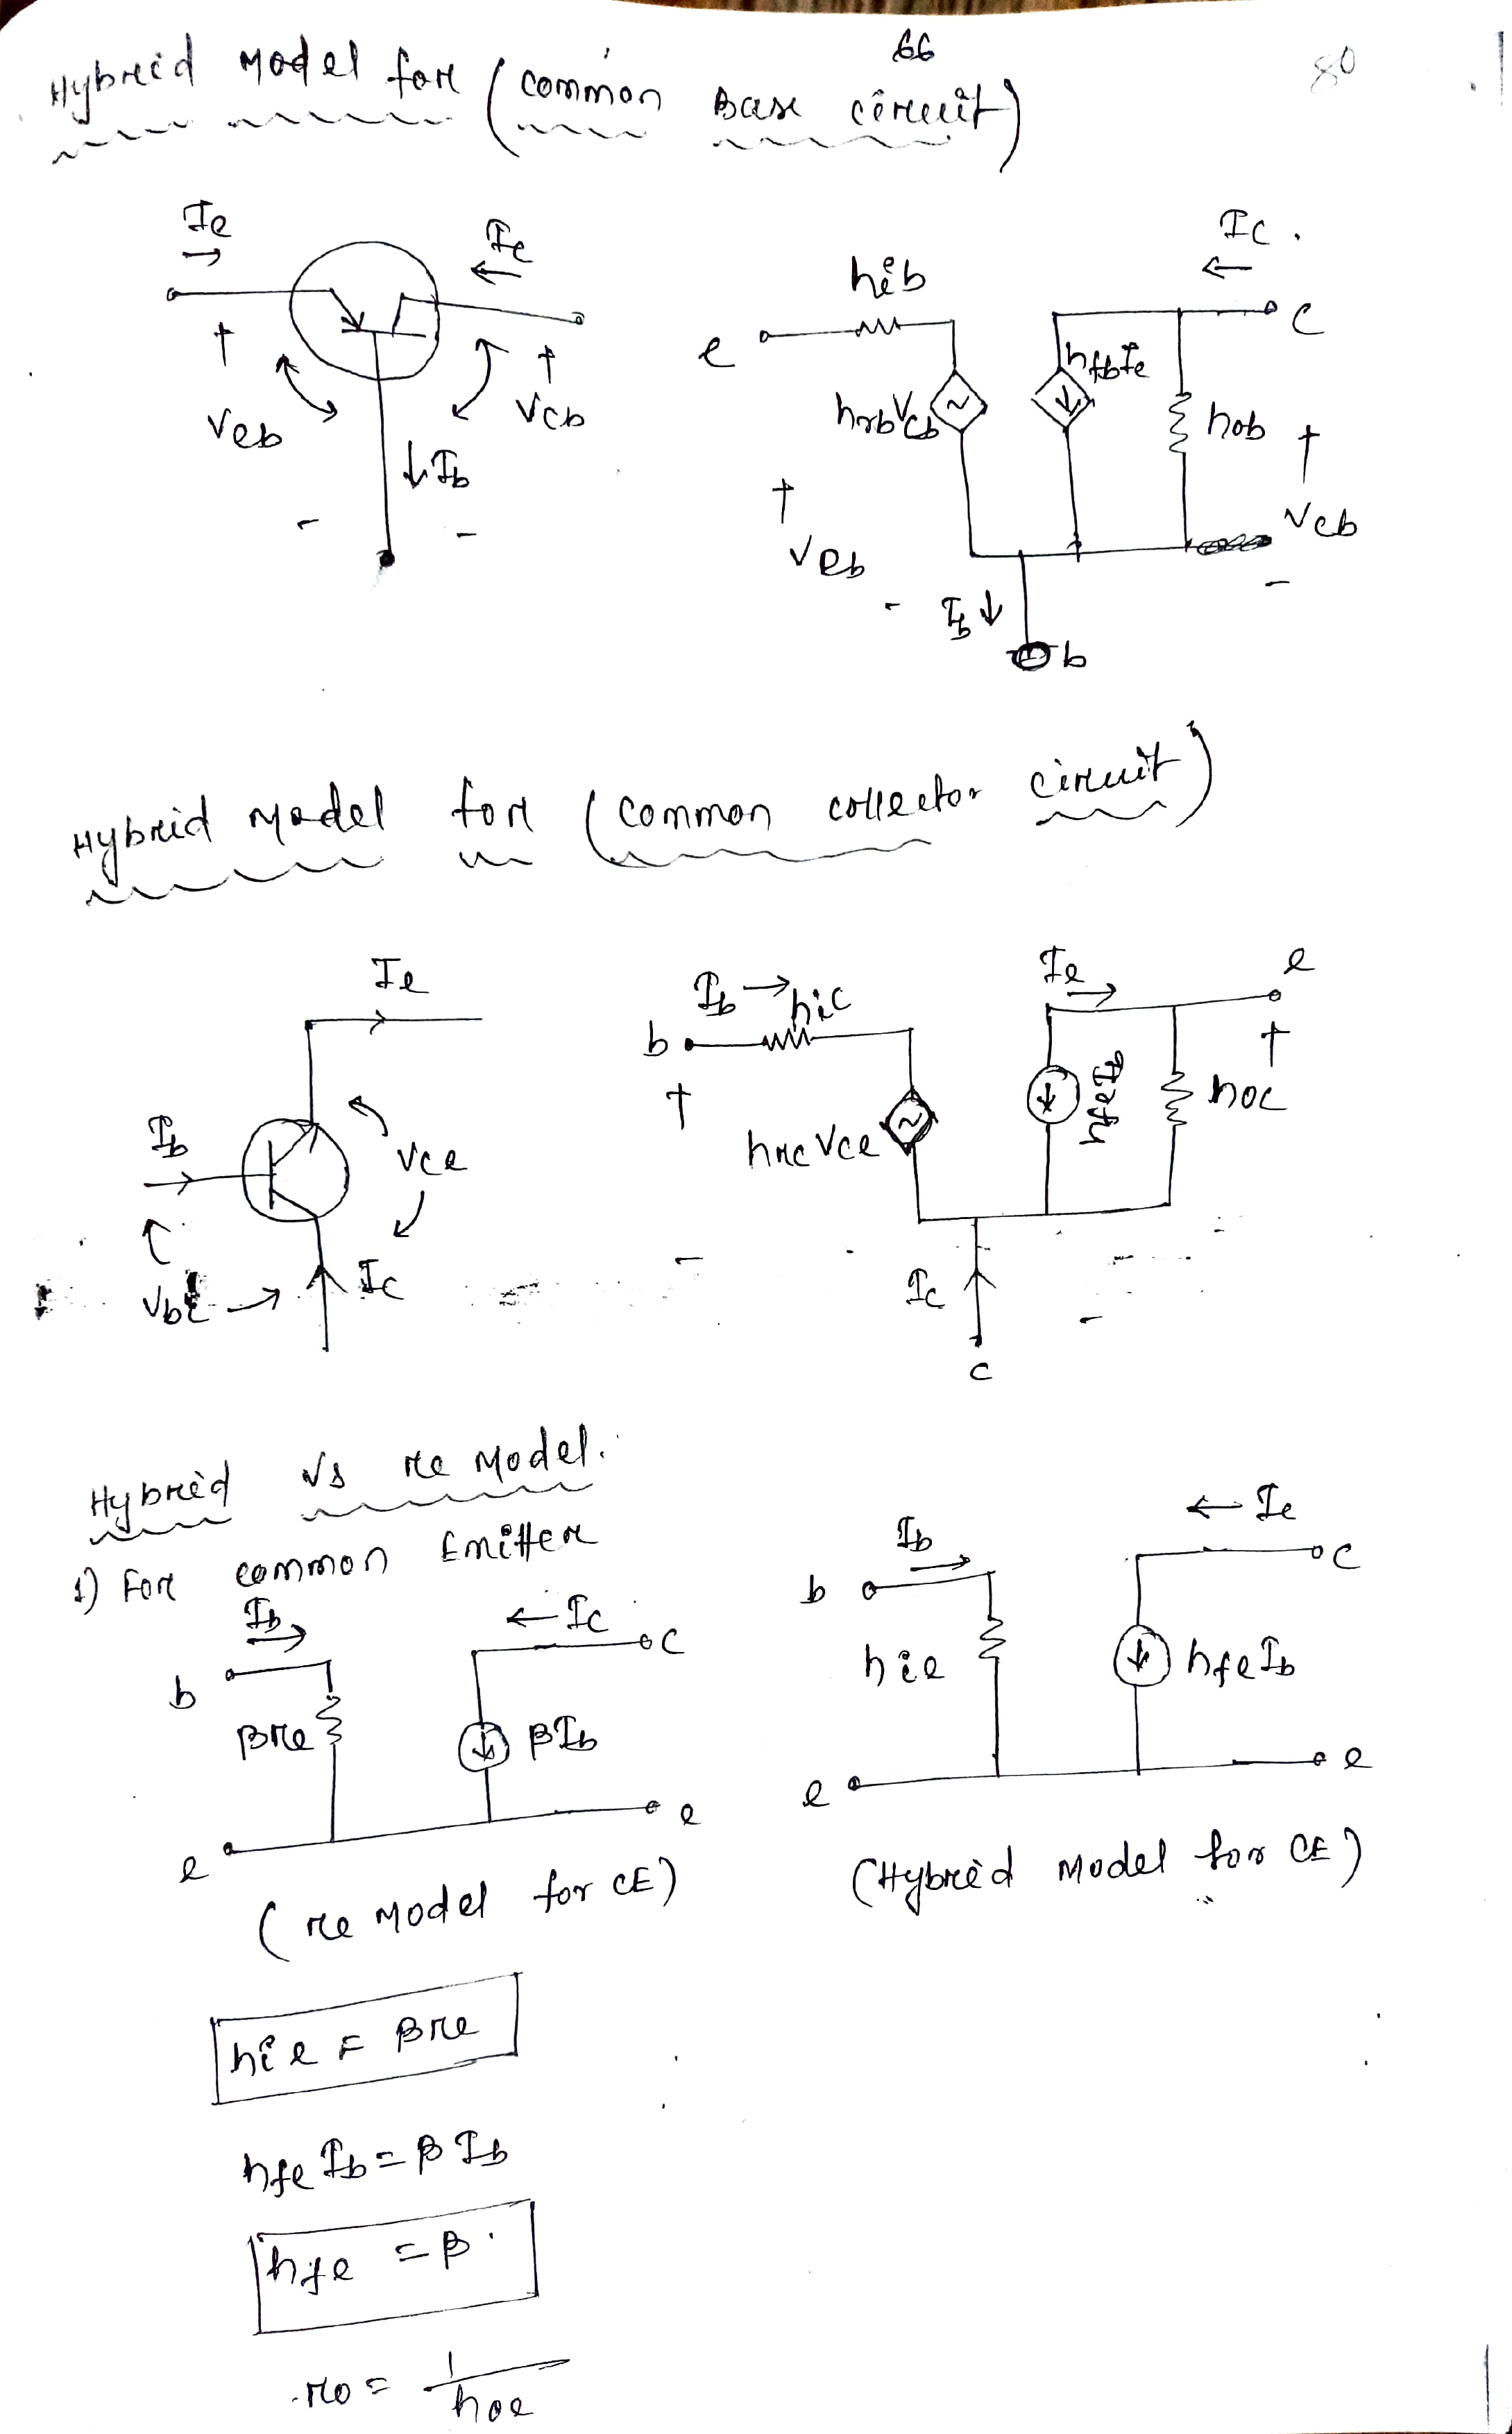 66
80
Hybrid Model for (common Base circuit)
Ie
Ic
+
Veb
+
Vcb
↓Ib
-
-
hib
Ic.
e
C
hrbVcb
hfbIe
hob
+
Vcb
+
Veb
-
-
Ib ↓
b
Hybrid Model for (common collector circuit)
Ie
Ib
Vce
Vbc
Ic
Ib → hic
b
+
hrcVce
Ie
e
+
hoc
-
Ic
-
c
Hybrid Vs re Model.
1) For common Emitter
Ib
← Ic
b
C
βre
βIb
e
e
(re Model for CE)
Ib
← Ic
b
C
hie
hfeIb
e
e
(Hybrid Model for CE)
hie = βre
hfe Ib = β Ib
hfe = β.
ro = 1
hoe